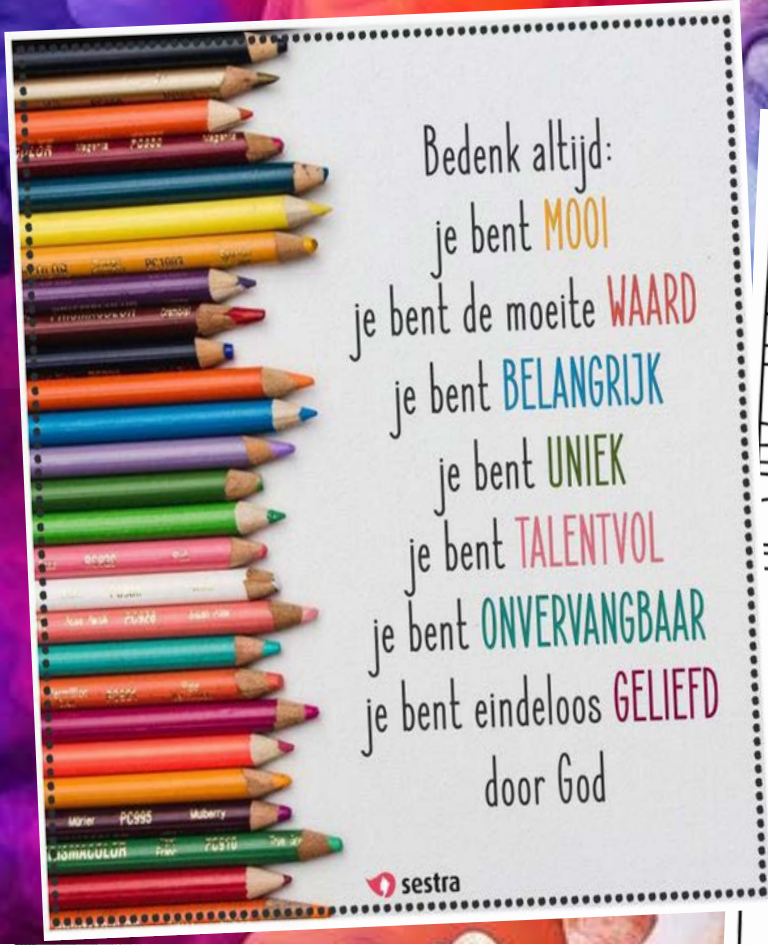 Bedenk altijd:
je bent MOOI
je bent de moeite WAARD
je bent BELANGRIJK
je bent UNIEK
je bent TALENTVOL
je bent ONVERVANGBAAR
je bent eindeloos GELIEFD
door God
sestra
Magenta PC930 Magenta
PC1003
PRISMACOLOR
PC995 Mulberry
PC910